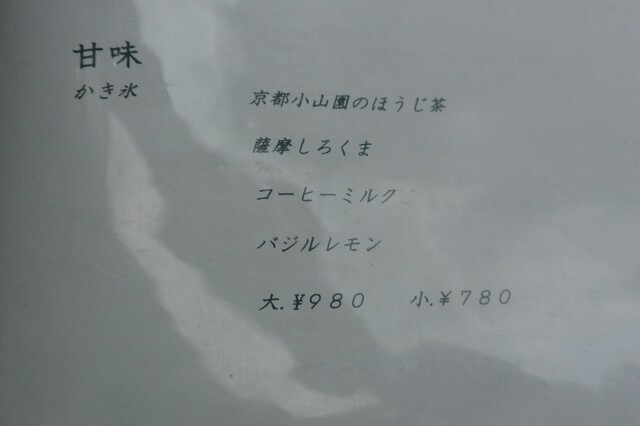 甘味
かき氷
京都小山園のほうじ茶
薩摩しろくま
コーヒーミルク
バジルレモン
大.¥980 小.¥780